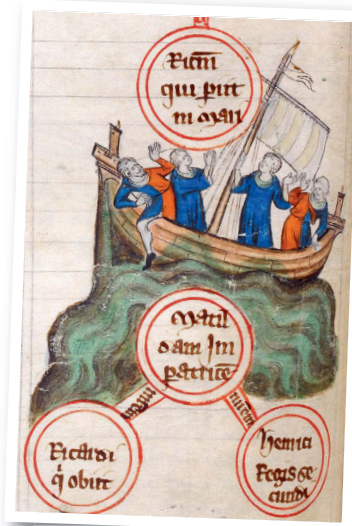 Ricm̄
qui p̱iit
in mari
Matil
dam Im
patricē
Ricardi
qi obiit
henrici
Regis se
cundi